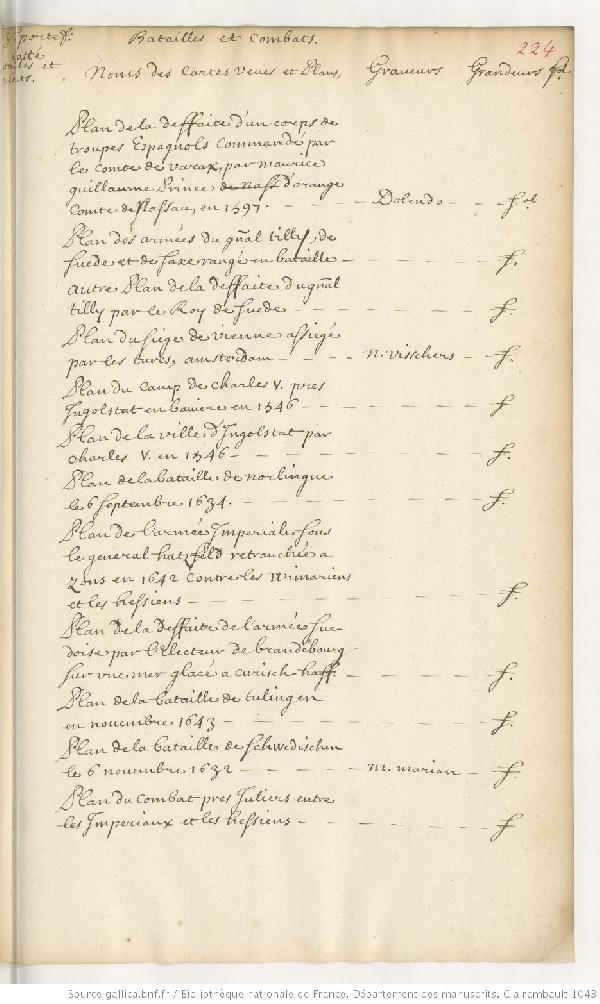 3e portef.
Batailles et Combats.
224
cotté
Noms des Cartes Veues et Plans, Graveurs Grandeurs fol
Plan de la deffaite d'un corps de
troupes Espagnols Commandé par
le Comte de varax, par maurice
guillaume Prince de Nass d'orange
Comte de Nassau, en 1597. - - - Dolendo - - fol
Plan des armées du gñal tilly, de
suede et de saxe rangé en bataille - - - - f.
autre Plan de la deffaite du gñal
tilly par le Roy de suede - - - - - f.
Plan du siege de vienne assiegé
par les turcs, amsterdam - - - n. visschers - - f.
Plan du Camp de Charles V. pres
Ingolstat en baviere en 1546 - - - - - f
Plan de la ville d'Ingolstat par
charles V. en 1546 - - - - - - f.
Plan de la bataille de norlingue
le 6 septembre 1634. - - - - - - f.
Plan de l'armée Imperiale sous
le general hatzfeld retranchée a
zons en 1642 contre les Wimariens
et les hessiens - - - - - - - f.
Plan de la deffaite de l'armée sue-
doise par l'Electeur de brandebourg
sur une mer glacé a curisch-haff. - - - - f.
Plan de la bataille de tulingen
en novembre 1643 - - - - - - f.
Plan de la bataille de schwedischen
le 6 novembre 1632 - - - - m. marian - f.
Plan du Combat pres Juliers entre
les Imperiaux et les hessiens - - - - - f
Source gallica.bnf.fr / Bibliothèque nationale de France. Département des manuscrits. Clairambault 1043